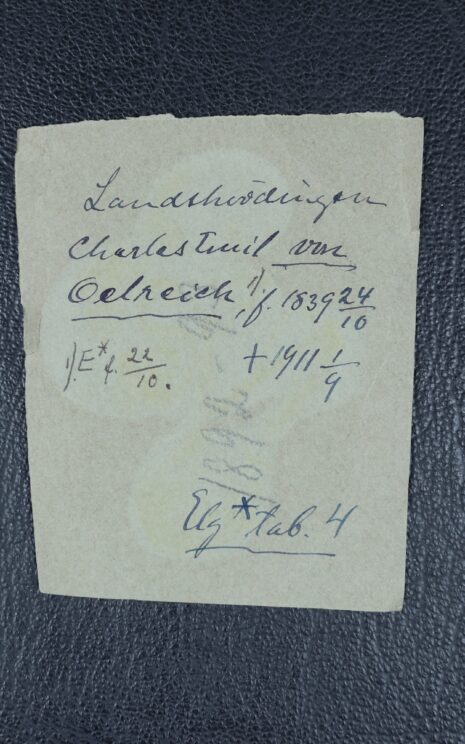 Landshövdingen
Charles Emil von
Oelreich, 1). f. 1839 24/10
1). E* f. 22/10.
+ 1911 1/9
1892-9
Elg* tab. 4